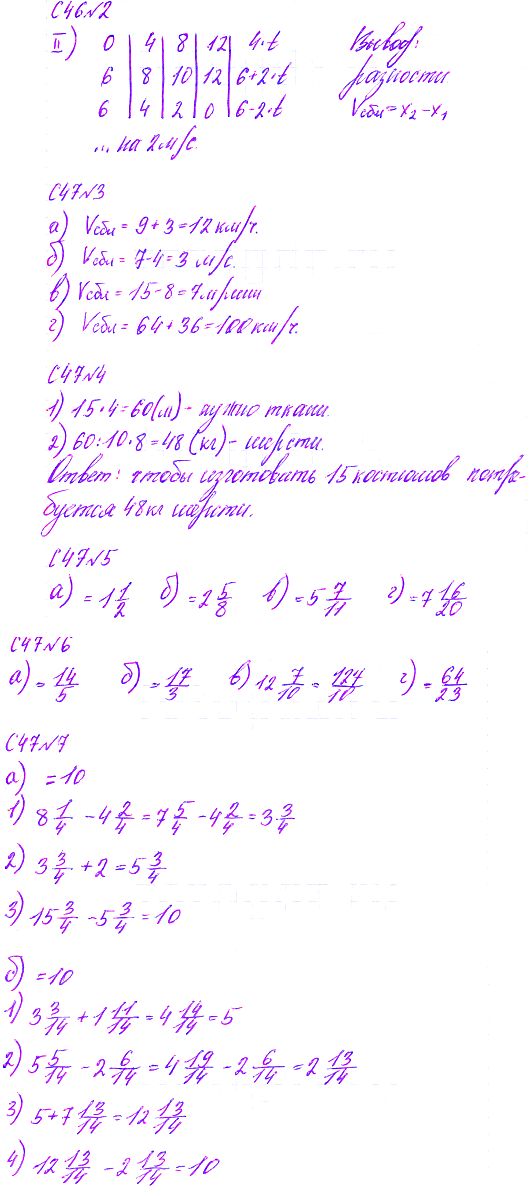 С46№2
II) 0 | 4 | 8 | 12 | 4·t Вывод:
6 | 8 | 10 | 12 | 6+2·t разности
6 | 4 | 2 | 0 | 6-2·t Vсбл = x₂-x₁
... на 2 м/с.
С47№3
а) Vсбл = 9+3=12 км/ч.
б) Vсбл = 7-4=3 м/с.
в) Vсбл = 15-8=7 м/мин
г) Vсбл = 64+36=100 км/ч.
С47№4
1) 15·4=60(м)- нужно ткани.
2) 60:10·8=48 (кг)- шерсти.
Ответ: чтобы изготовить 15 костюмов потре-
буется 48 кг шерсти.
С47№5
а) =1 1/2 б) =2 5/8 в) =5 7/11 г) =7 16/20
С47№6
а) = 14/5 б) = 17/3 в) 12 7/10 = 127/10 г) = 64/23
С47№7
а) =10
1) 8 1/4 - 4 2/4 = 7 5/4 - 4 2/4 = 3 3/4
2) 3 3/4 + 2 = 5 3/4
3) 15 3/4 - 5 3/4 = 10
б) =10
1) 3 3/14 + 1 11/14 = 4 14/14 = 5
2) 5 5/14 - 2 6/14 = 4 19/14 - 2 6/14 = 2 13/14
3) 5+7 13/14 = 12 13/14
4) 12 13/14 - 2 13/14 = 10